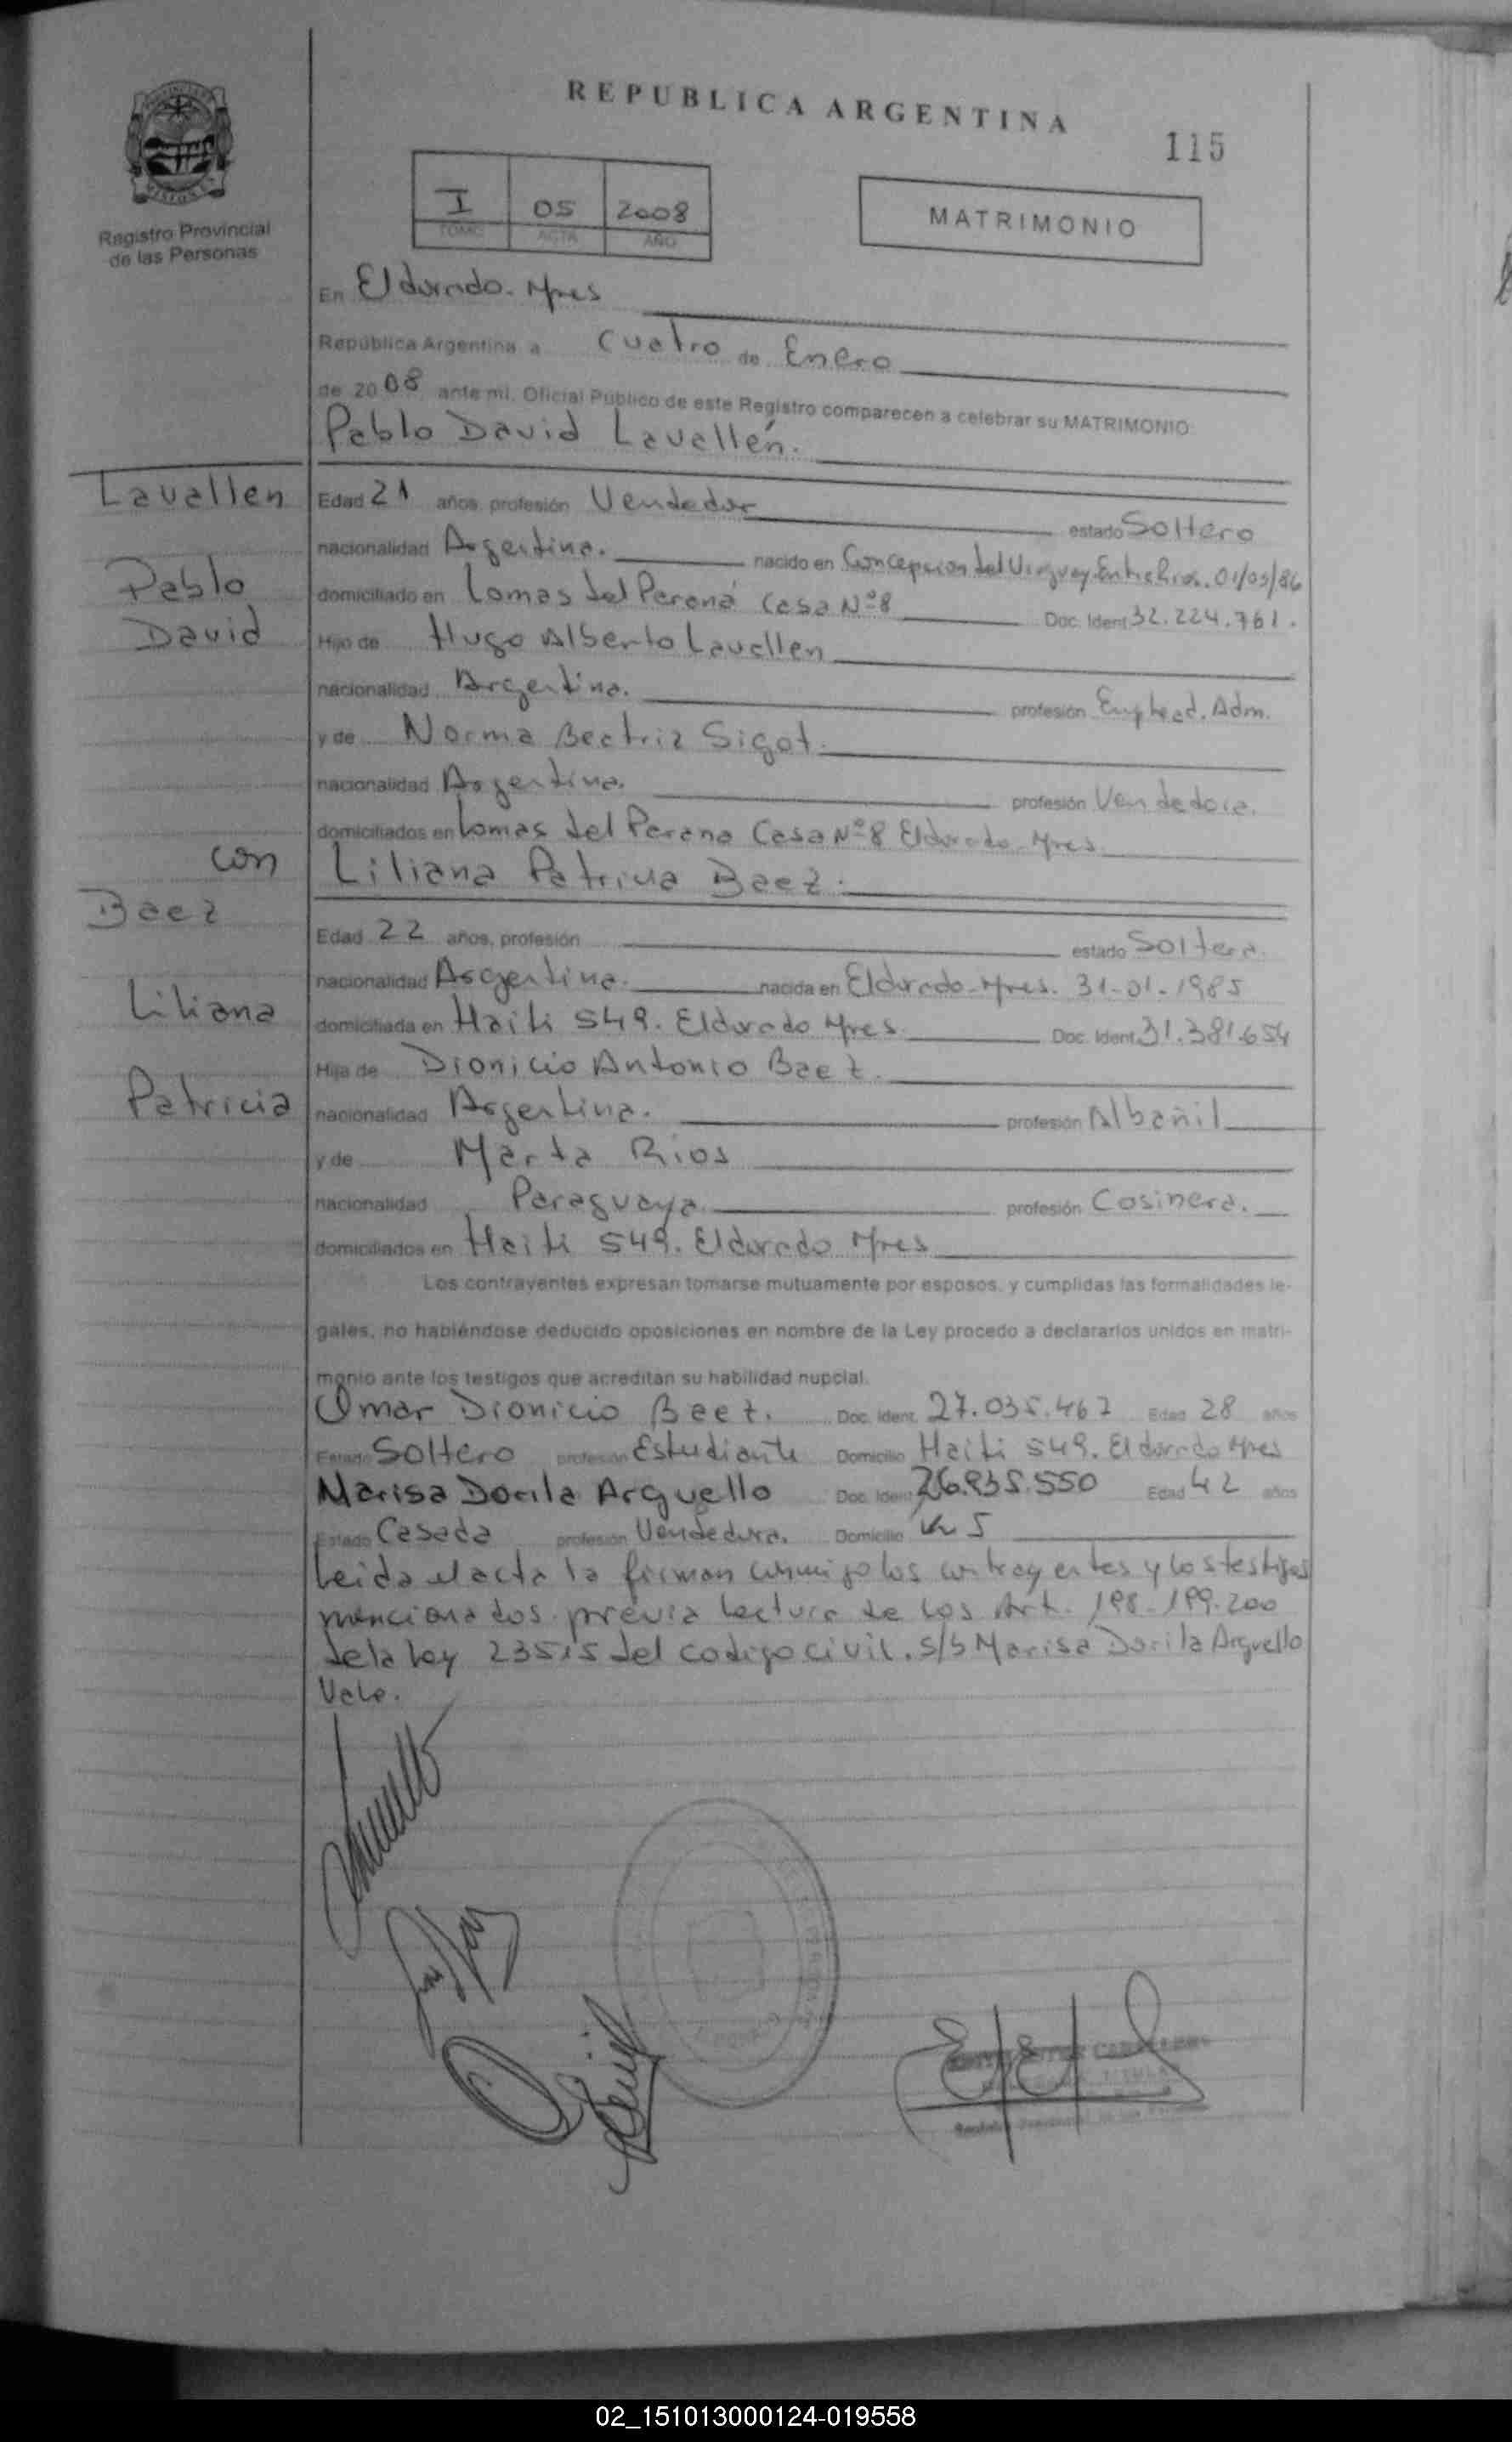 REPUBLICA ARGENTINA
115
I 05 2008
TOMO ACTA AÑO
MATRIMONIO
Registro Provincial
de las Personas
En Eldorado-Mnes
República Argentina a Cuatro de Enero
de 2008 ante mi, Oficial Público de este Registro comparecen a celebrar su MATRIMONIO
Pablo David Lavallén.
Lavallen
Pablo
David
Edad 21 años profesión Vendedor estado Soltero
nacionalidad Argentina. nacido en Concepcion del Uruguay-Entre Rios. 01/09/86
domiciliado en Lomas del Paraná Casa Nº8 Doc. Ident 32.224.761.
Hijo de Hugo Alberto Lavallen
nacionalidad Argentina. profesión Emplead. Adm.
y de Norma Beatriz Sigot.
nacionalidad Argentina. profesión Vendedora.
domiciliados en Lomas del Parana Casa Nº8 Eldorado-Mnes
con
Baez
Liliana
Patricia
Liliana Patricia Baez.
Edad 22 años, profesión estado Soltera.
nacionalidad Argentina. nacida en Eldorado-Mnes. 31-01-1985
domiciliada en Haiti 549. Eldorado Mnes Doc. Ident. 31.381.654
Hija de Dionicio Antonio Baez.
nacionalidad Argentina. profesión Albañil
y de Marta Rios
nacionalidad Paraguaya profesión Cosinera.
domiciliados en Haiti 549. Eldorado Mnes
Los contrayentes expresan tomarse mutuamente por esposos, y cumplidas las formalidades le-
gales, no habiéndose deducido oposiciones en nombre de la Ley procedo a declararlos unidos en matri-
monio ante los testigos que acreditan su habilidad nupcial.
Omar Dionicio Baez. Doc. Ident. 27.035.467 Edad 28 años
Estado Soltero profesión Estudiante Domicilio Haiti 549. Eldorado Mnes
Marisa Dorila Arguello Doc. Ident 26.835.550 Edad 42 años
Estado Casada profesión Vendedora. Domicilio Km 5
Leida el acta la firman conmigo los contrayentes y los testigos
mencionados previa lectura de los Art. 198-199-200
de la Ley 23515 del codigo civil. S/b Marisa Dorila Arguello
Vale.
02_151013000124-019558